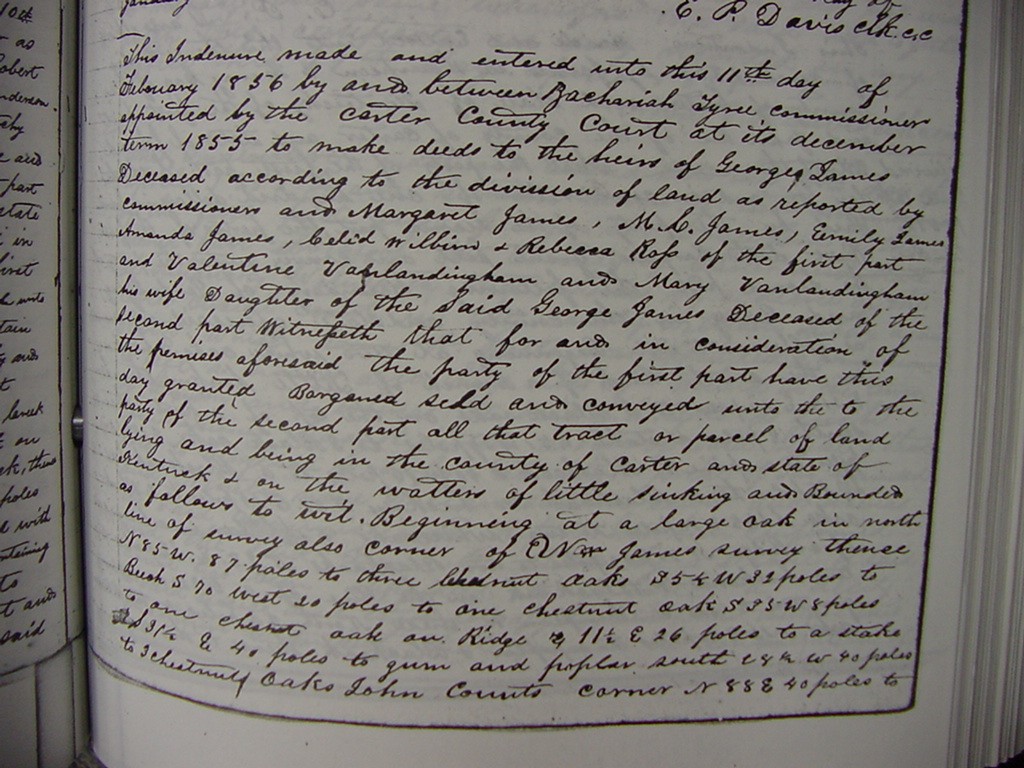 10th
as
obert
nderson
and
part
state
in
first
tain
and
t
on
poles
with
to
and
said
January
E. P. Davis clk c,c
This Indenure made and entered into this 11th day of
Febuary 1856 by and between Zachariah Tyree commissioner
appointed by the Carter County Court at its december
term 1855 to make deeds to the heirs of George James
Deceased according to the division of land as reported by
commissioners and Margaret James, M. L. James, Emily James
Amanda James, & Rebecca Ross of the first part
and Valentine Vanlandingham and Mary Vanlandingham
his wife Daughter of the said George James Deceased of the
second part Witnesseth that for and in consideration of
the premises aforesaid the party of the first part have this
day granted Barganed seld and conveyed unto the to the
party of the second part all that tract or parcel of land
lying and being in the county of Carter and state of
Kentuck & on the watters of little sinking and Bounded
as follows to wit. Beginning at a large oak in north
line of survey also corner of James survey thence
N 85 W. 87 poles to three chesnut oaks S 54 W 32 poles to
Beech S 70 West 20 poles to one chestnut oak S 35 W 8 poles
to one chesnut oak on Ridge 11½ E 26 poles to a stake
S 31½ E 40 poles to gum and poplar south W 40 poles
to 3 chestnut Oaks John Counts corner N 88 E 40 poles to